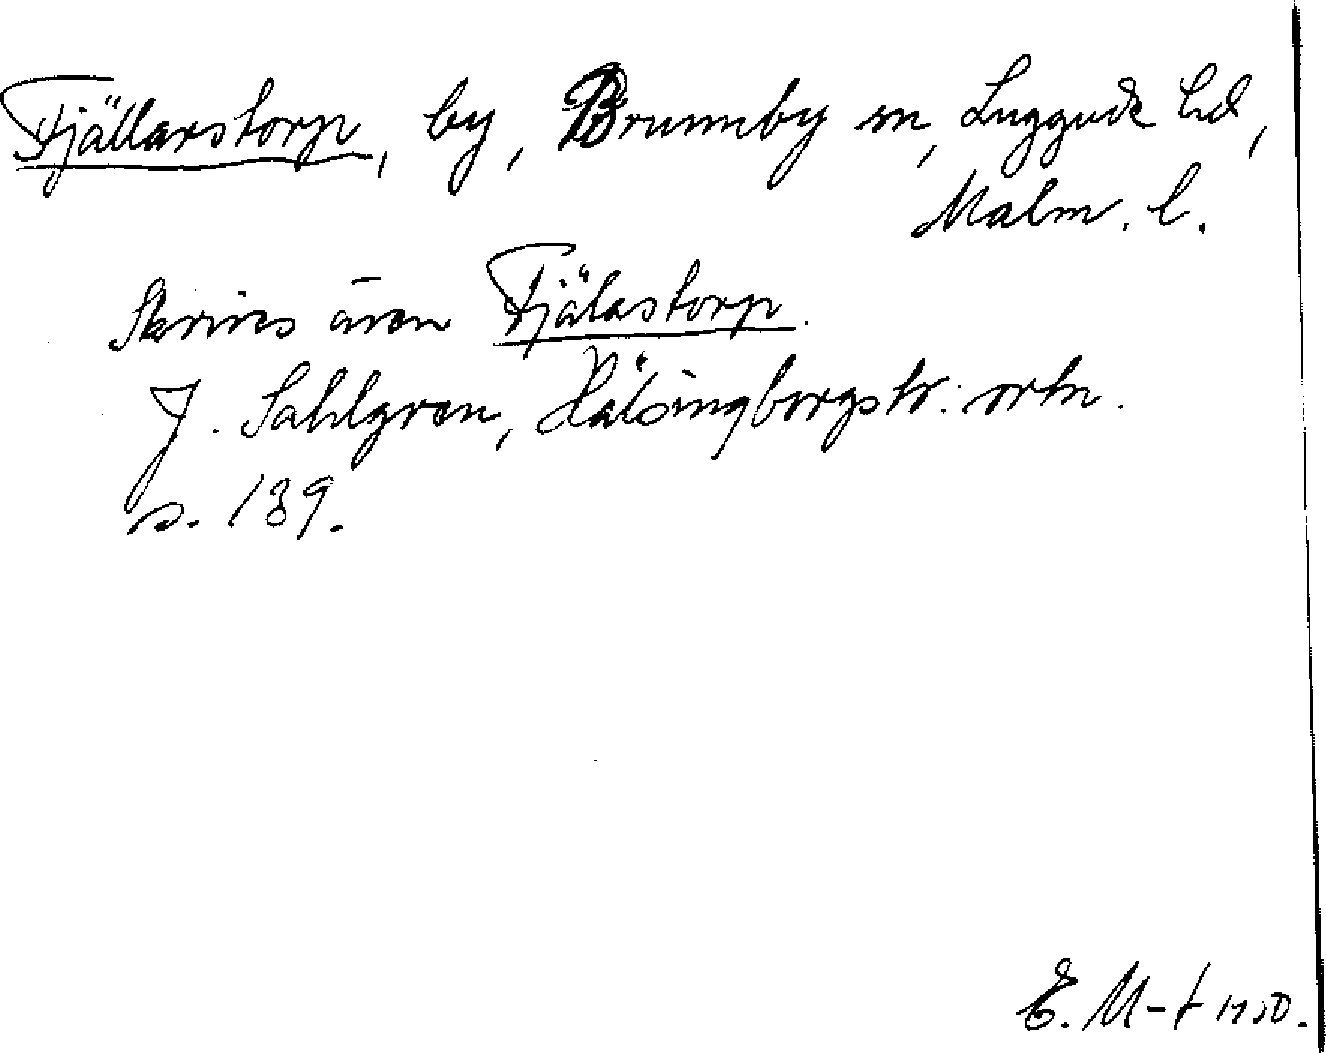 Fjällarstorp, by, Brunnby sn, Luggude hd,
Malm. l.
Skrives även Fjälastorp.
J. Sahlgren, Hälsingborgstr: ortn.
s. 189.
E. M-t 1950.